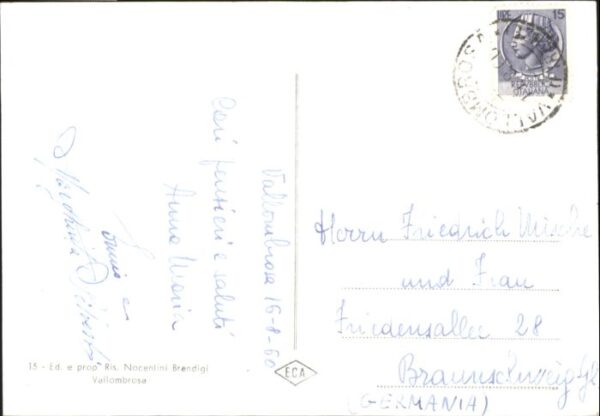 LIRE 15
VALLOMBROSA
POSTE
ITALIANE
Vallombrosa 16-8-60
Cari pensieri e saluti
Anna Maria
Herrn Friedrich Mische
und Frau
Friedensallee 28
Braunschweig
(GERMANIA)
15 - Ed. e prop. Ris. Nocentini Brendigi
Vallombrosa
ECA